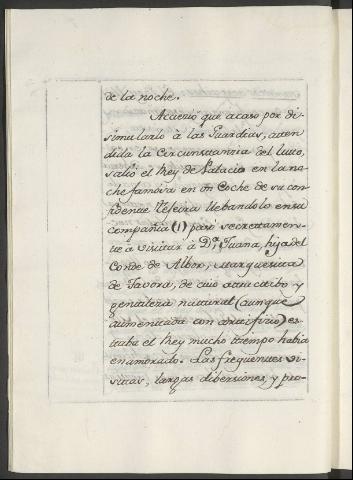 de la noche.
Acaeció que acaso por di-
simularlo à las Guardias, aten-
dida la Circunstanzia del luto,
salió el Rey de Palacio en la no-
che famosa en ôn Coche de su con-
fidente Teseira llebandolo en su
compañia (1) para secrettamen-
te à visitar à D.ª Juana, hija del
Conde de Albor, Marquesita
de Tavora, de cuio atractibo y
gentileza natural (aunque
aumentada con artifizio) es-
taba el Rey mucho tiempo habia
enamorado. Las frequentes vi-
sitas, largas dibersiones, y pro-